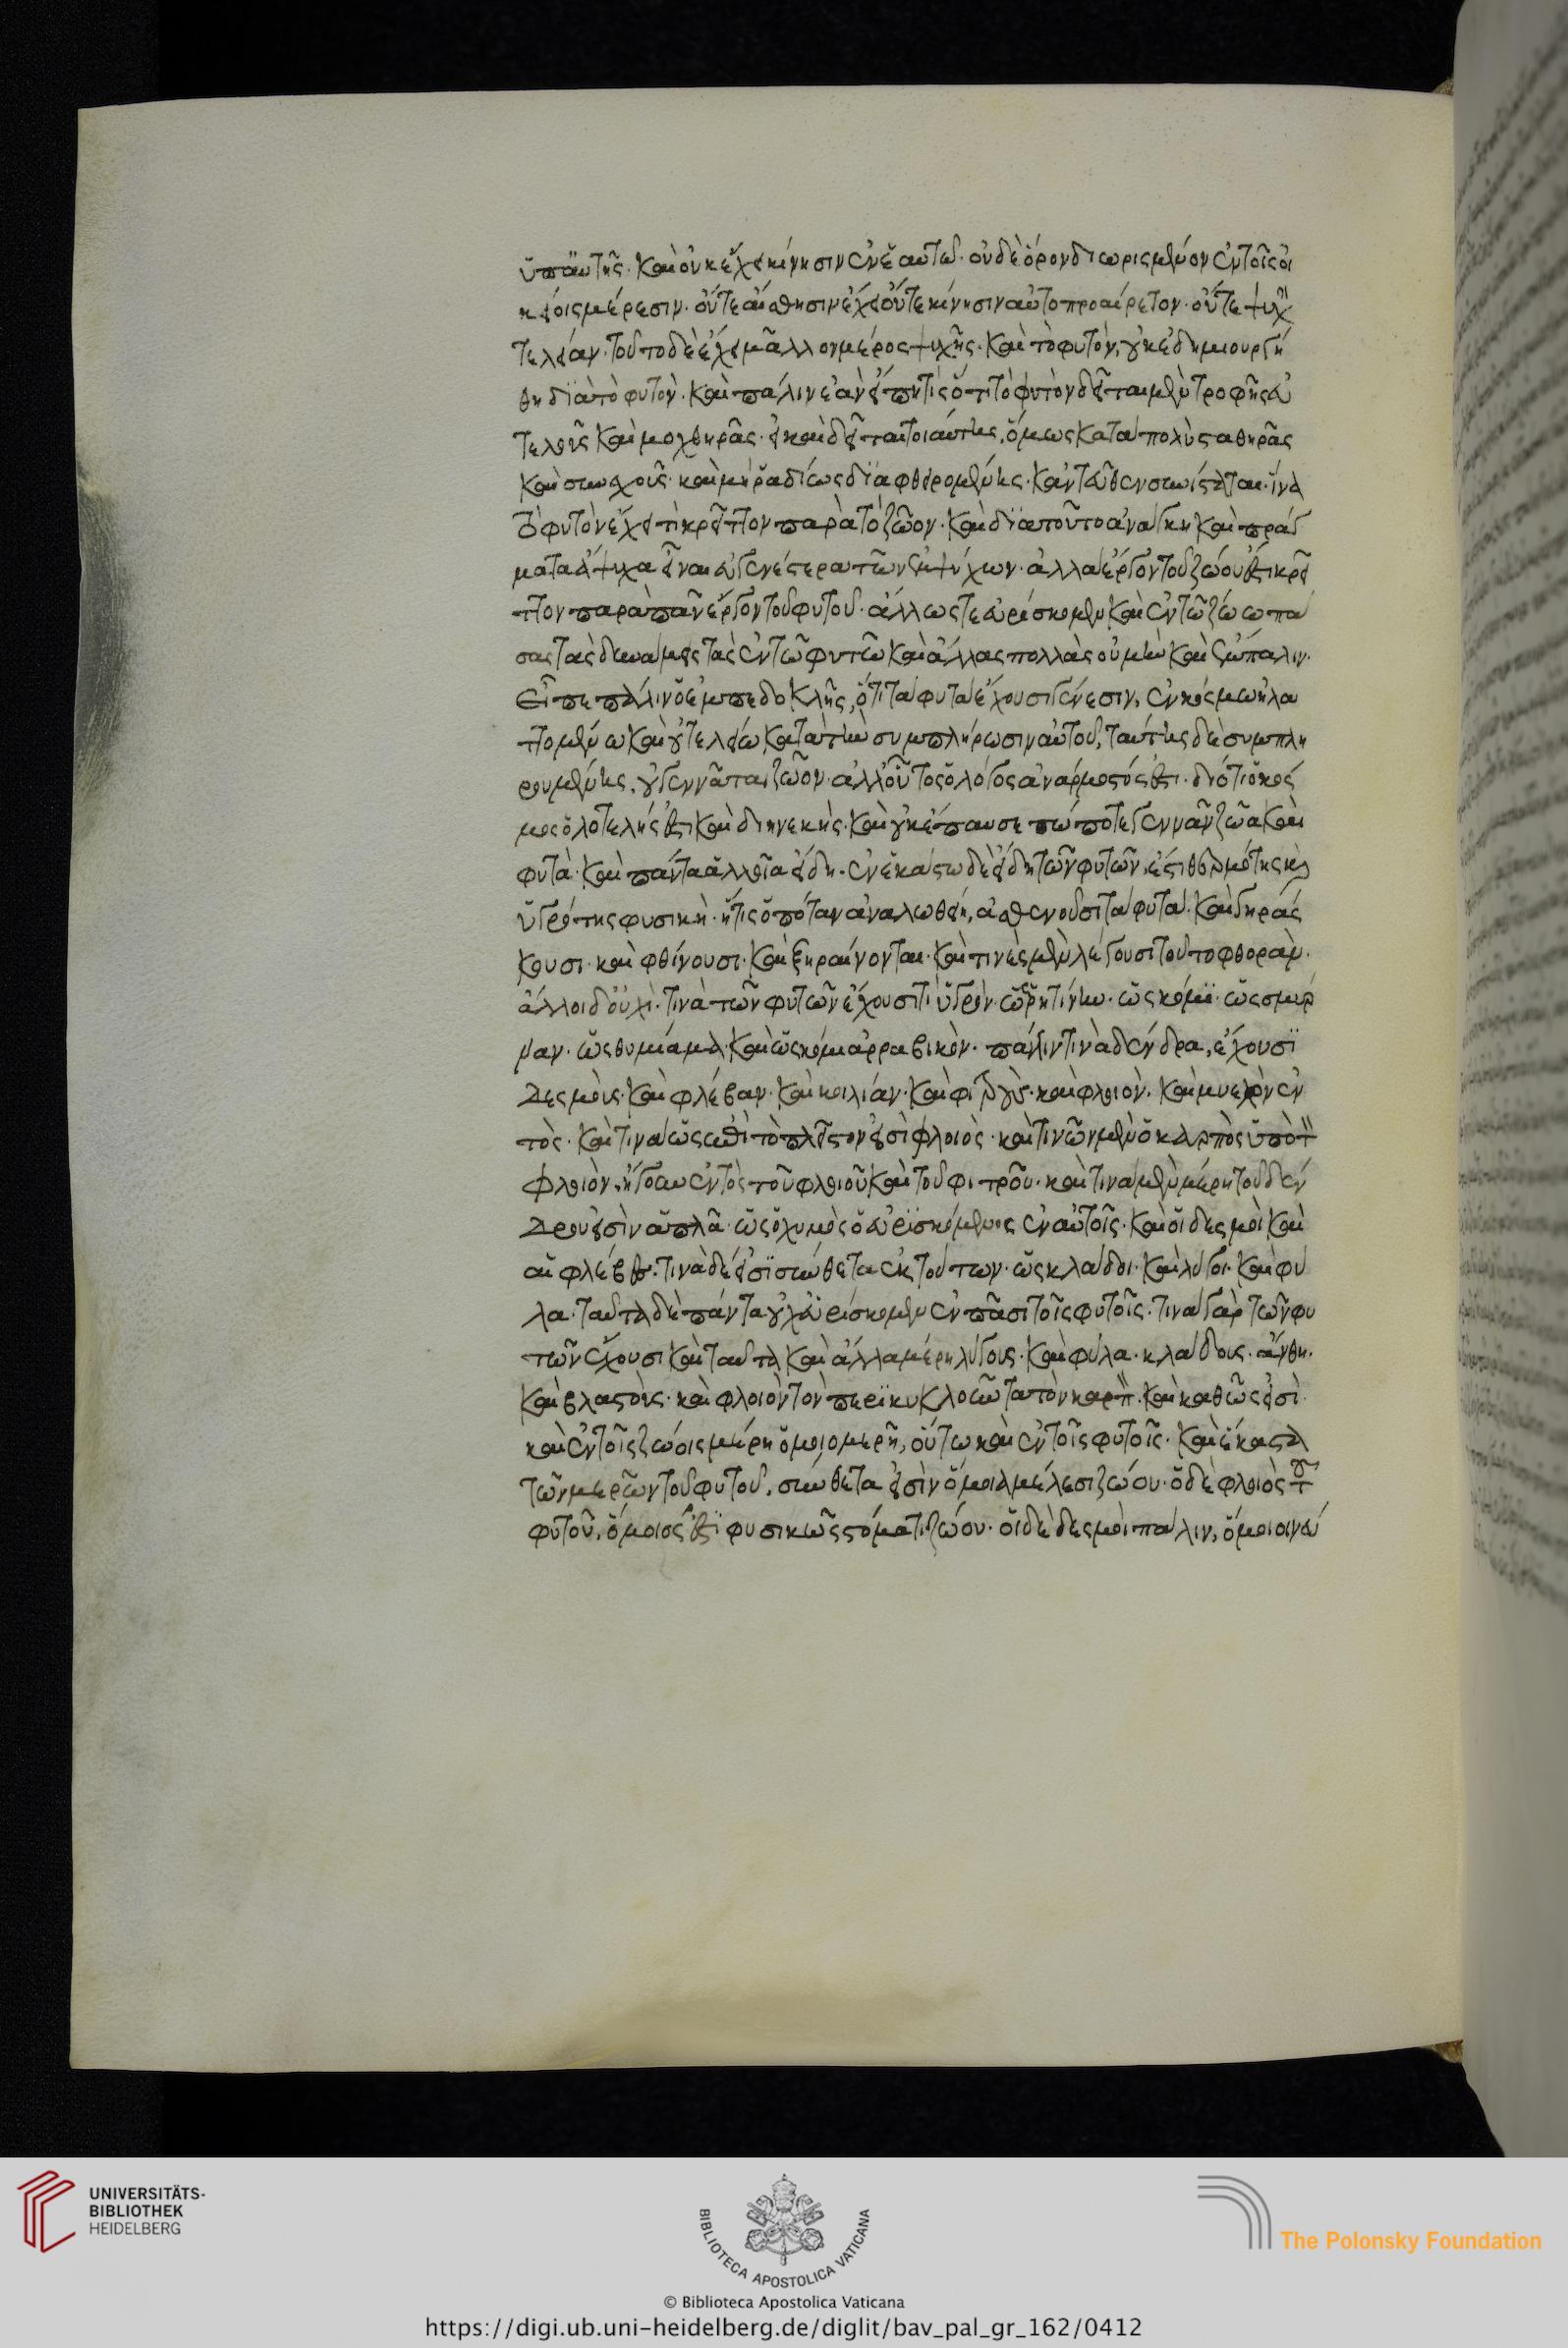 ὑπ' αὐτῆς. καὶ οὐκ ἔχει κίνησιν ἐν ἑαυτῷ. οὐδὲ ὅρον διωρισμένον ἐν τοῖς οἰ
κείοις μέρεσιν. οὔτε αἴσθησιν ἔχει οὔτε κίνησιν αὐτοπροαίρετον. οὔτε ψυχὴν
τελείαν. τοῦτο δὲ ἔχει μᾶλλον μέρος ψυχῆς. καὶ τὸ φυτὸν, οὐκ ἐδημιουργή
θη διὰ τὸ φυτὸν. καὶ πάλιν ἐὰν εἴπῃ τις ὅτι τὸ φυτὸν δεῖται μὲν τροφῆς εὐ
τελοῦς καὶ μοχθηρᾶς. εἰ καὶ δεῖται τοιαύτης, ὅμως κατὰ πολὺ σταθηρᾶς
καὶ συνεχοῦς. καὶ μὴ ῥαδίως διαφθειρομένης. κἀντεῦθεν συνίσταται. ἵνα
τὸ φυτὸν ἔχει τὶ κρεῖττον παρὰ τὸ ζῶον. καὶ διὰ τοῦτο ἀνάγκη καὶ πράγ
ματα ἄψυχα εἶναι εὐγενέστερα τῶν ἐμψύχων. ἀλλὰ ἔργον τοῦ ζώου ἐστὶ κρεῖ
ττον παρὰ πᾶν ἔργον τοῦ φυτοῦ. ἄλλως τε εὑρίσκομεν καὶ ἐν τῷ ζώω πά
σας τὰς δυνάμεις τὰς ἐν τῷ φυτῷ καὶ ἄλλας πολλὰς οὐ μὴν καὶ ἔμπαλιν.
Εἶπε πάλιν ὁ ἐμπεδοκλῆς, ὅτι τὰ φυτὰ ἔχουσι γένεσιν, ἐν κόσμω ἠλα
ττομένω καὶ οὐ τελείω κατὰ τὴν συμπλήρωσιν αὐτοῦ, ταύτης δὲ συμπλη
ρουμένης, οὐ γεννᾶται ζῶον. ἀλλ' οὗτος ὁ λόγος ἀνάρμοστός ἐστι. διότι ὁ κόσ
μος ὁλοτελής ἐστι καὶ διηνεκής. καὶ οὐκ ἔπαυσε πώποτε γεννᾶν ζῶα καὶ
φυτὰ. καὶ πάντα ἀλλοῖα εἴδη. ἐν ἑκάστω δὲ εἴδη τῶν φυτῶν, ἐστὶ θερμότης καὶ
ὑγρότης φυσικὴ. ἥτις ὁπόταν ἀναλωθείη, ἀσθενοῦσι τὰ φυτὰ. καὶ γηράς
κουσι. καὶ φθίνουσι. καὶ ξηραίνονται. καὶ τινὲς μὲν λέγουσι τοῦτο φθορὰν.
ἄλλοι δ' οὐχὶ. τινὰ τῶν φυτῶν ἔχουσι τὶ ὑγρὸν. ὡς ῥητίνην. ὡς κόμι. ὡς σμύρ
ναν. ὡς θυμίαμα. καὶ ὡς κόμι ἀρραβικὸν. πάλιν τινὰ δένδρα, ἔχουσι
δεσμοὺς. καὶ φλέβαν. καὶ κοιλίαν. καὶ φιτροὺς. καὶ φλοιὸν. καὶ μυελὸν ἐν
τὸς. καὶ τινὰ ὡς ἐπὶ τὸ πλεῖστον εἰσὶ φλοιὸς. καὶ τινῶν μὲν ὁ καρπὸς ὑπὸ τὸν
φλοιὸν, ἤγουν ἐντὸς τοῦ φλοιοῦ καὶ τοῦ φιτροῦ. καὶ τινὰ μὲν μέρη τοῦ δέν
δρου εἰσὶν ἁπλᾶ. ὡς ὁ χυμὸς ὁ εὑρισκόμενος ἐν αὐτοῖς. καὶ οἱ δεσμοὶ καὶ
αἱ φλέβες. τινὰ δέ εἰσι σύνθετα ἐκ τούτων. ὡς κλάδοι. καὶ λύγοι. καὶ φύ
λα. ταῦτα δὲ πάντα οὐχ εὑρίσκομεν ἐν πᾶσι τοῖς φυτοῖς. τινὰ γὰρ τῶν φυ
τῶν ἔχουσι καὶ ταῦτα καὶ ἄλλα μέρη λύγους. καὶ φύλα. κλάδους. ἄνθη.
καὶ βλαστοὺς. καὶ φλοιὸν τὸν περικυκλοῦντα τὸν καρπὸν. καὶ καθὼς εἰσὶ
καὶ ἐν τοῖς ζώοις μέρη ὁμοιομερῆ, οὕτω καὶ ἐν τοῖς φυτοῖς. καὶ ἕκαστα
τῶν μερῶν τοῦ φυτοῦ, σύνθετα εἰσὶν ὅμοια μέλεσι ζώου. ὁ δὲ φλοιὸς τοῦ
φυτοῦ, ὅμοιός ἐστι φυσικῶς στόματι ζώου. οἱ δὲ δεσμοὶ πάλιν, ὅμοιοι νεύ
UNIVERSITÄTS-
BIBLIOTHEK
HEIDELBERG
BIBLIOTECA APOSTOLICA VATICANA
The Polonsky Foundation
© Biblioteca Apostolica Vaticana
https://digi.ub.uni-heidelberg.de/diglit/bav_pal_gr_162/0412